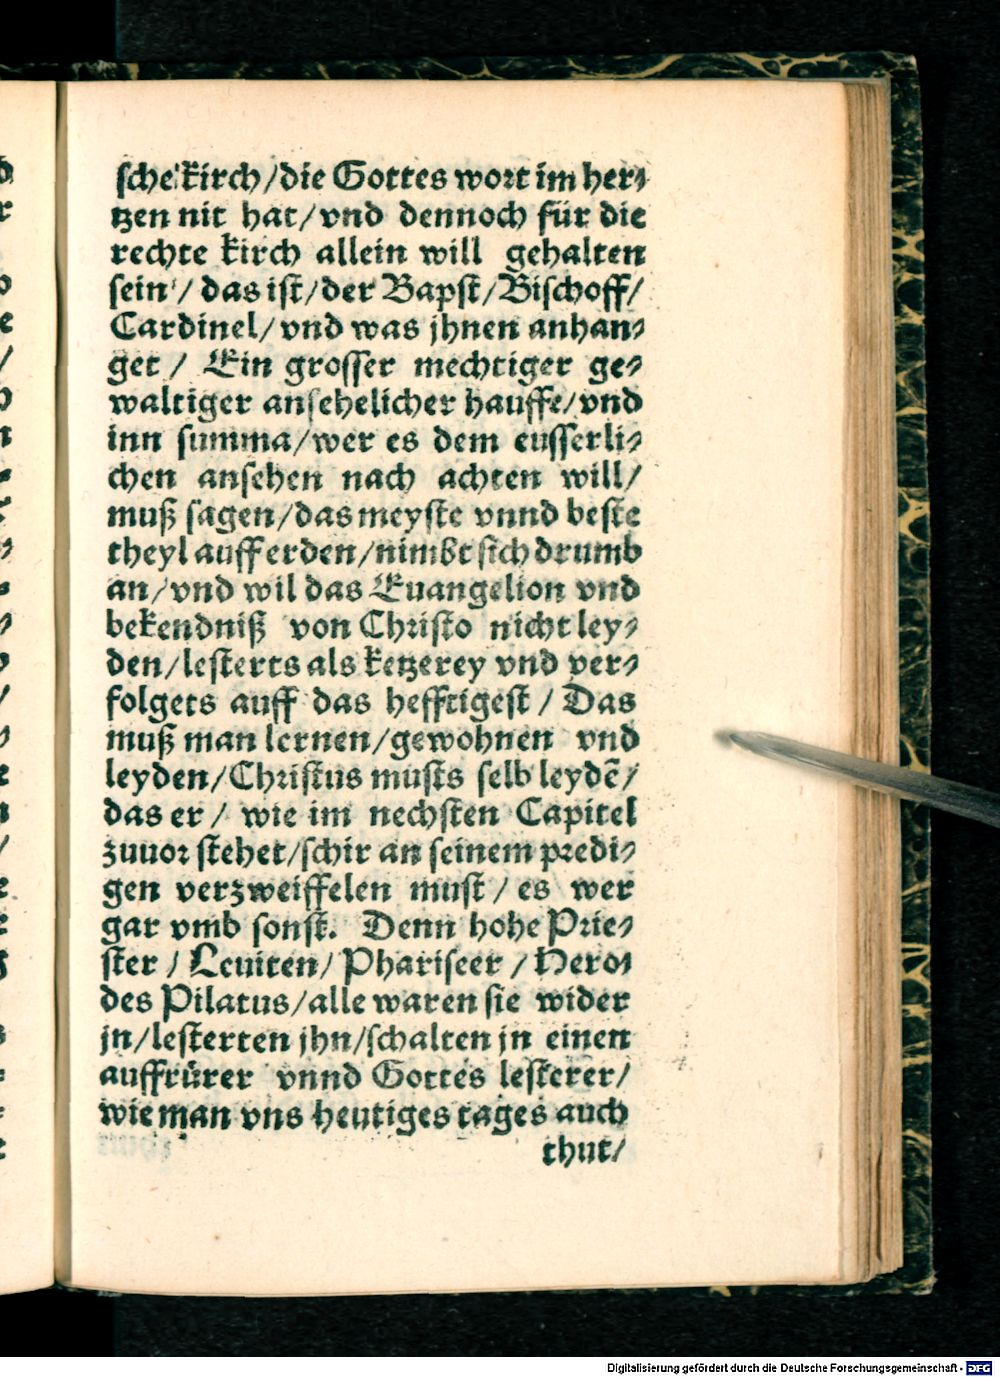 ſche kirch/die Gottes wort im her⸗
tzen nit hat/vnd dennoch für die
rechte kirch allein will gehalten
ſein/ das iſt/der Bapſt/Biſchoff/
Cardinel/vnd was jhnen anhan⸗
get / Ein groſſer mechtiger ge⸗
waltiger anſehelicher hauffe/vnd
inn ſumma/wer es dem euſſerli⸗
chen anſehen nach achten will/
muß ſagen/das meyſte vnnd beſte
theyl auff erden/nimbt ſich drumb
an/vnd wil das Euangelion vnd
bekendniß von Chriſto nicht ley⸗
den/leſterts als ketzerey vnd ver⸗
folgets auff das hefftigeſt / Das
muß man lernen/gewohnen vnd
leyden/Chriſtus muſts ſelb leydē/
das er / wie im nechſten Capitel
zuuor ſtehet/ſchir an ſeinem predi⸗
gen verzweiffelen muſt / es wer
gar vmb ſonſt. Denn hohe Prie⸗
ſter / Leuiten/ Phariſeer / Hero⸗
des Pilatus/alle waren ſie wider
jn/leſterten jhn/ſchalten jn einen
auffrürer vnnd Gottes leſterer/
wie man vns heutiges tages auch
thut/
Digitalisierung gefördert durch die Deutsche Forschungsgemeinschaft - DFG